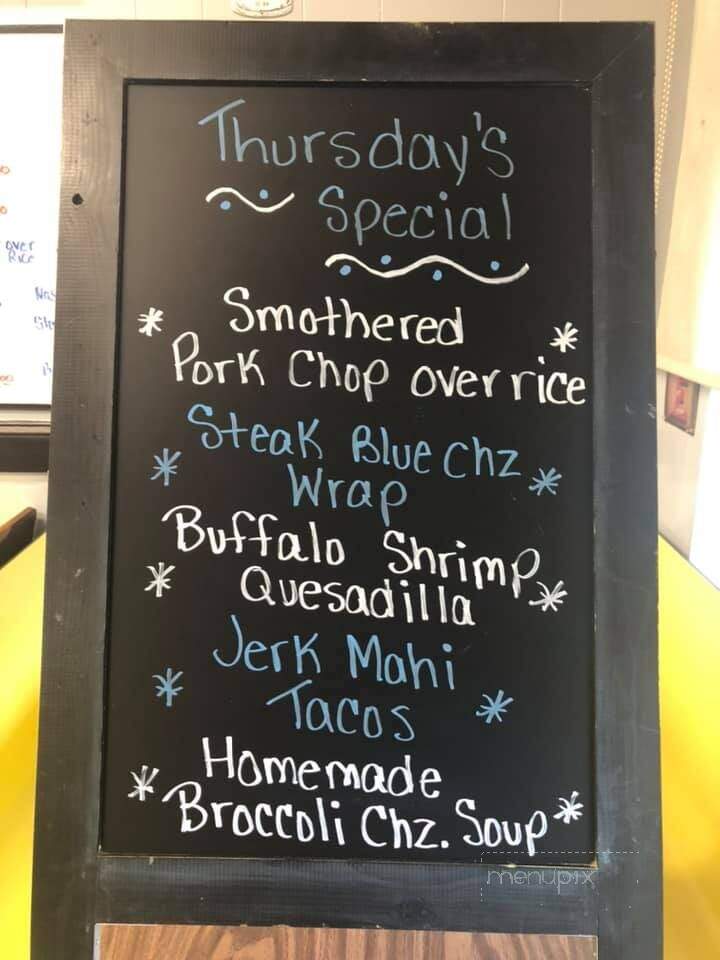 Thursday's
Special
* Smothered *
Pork Chop over rice
Steak Blue Chz
* Wrap *
Buffalo Shrimp
* Quesadilla *
Jerk Mahi
* Tacos *
Homemade
* Broccoli Chz. Soup *
menupix
over
Rice